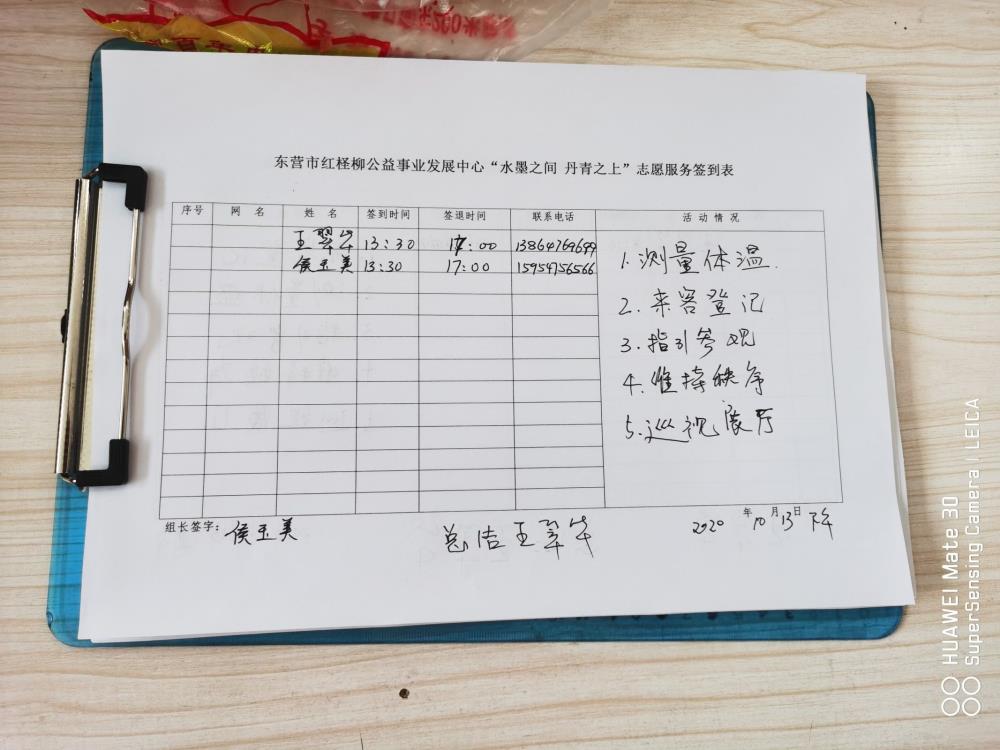 东营市红柽柳公益事业发展中心“水墨之间 丹青之上”志愿服务签到表
序号 网 名 姓 名 签到时间 签退时间 联系电话 活 动 情 况
王翠华 13:30 17:00 13864769699
侯玉美 13:30 17:00 15954756566
1.测量体温
2.来客登记
3.指引参观
4.维持秩序
5.巡视展厅
组长签字: 侯玉美 总结王翠华 2020 年 10 月 13 日 下午
HUAWEI Mate 30
SuperSensing Camera | LEICA